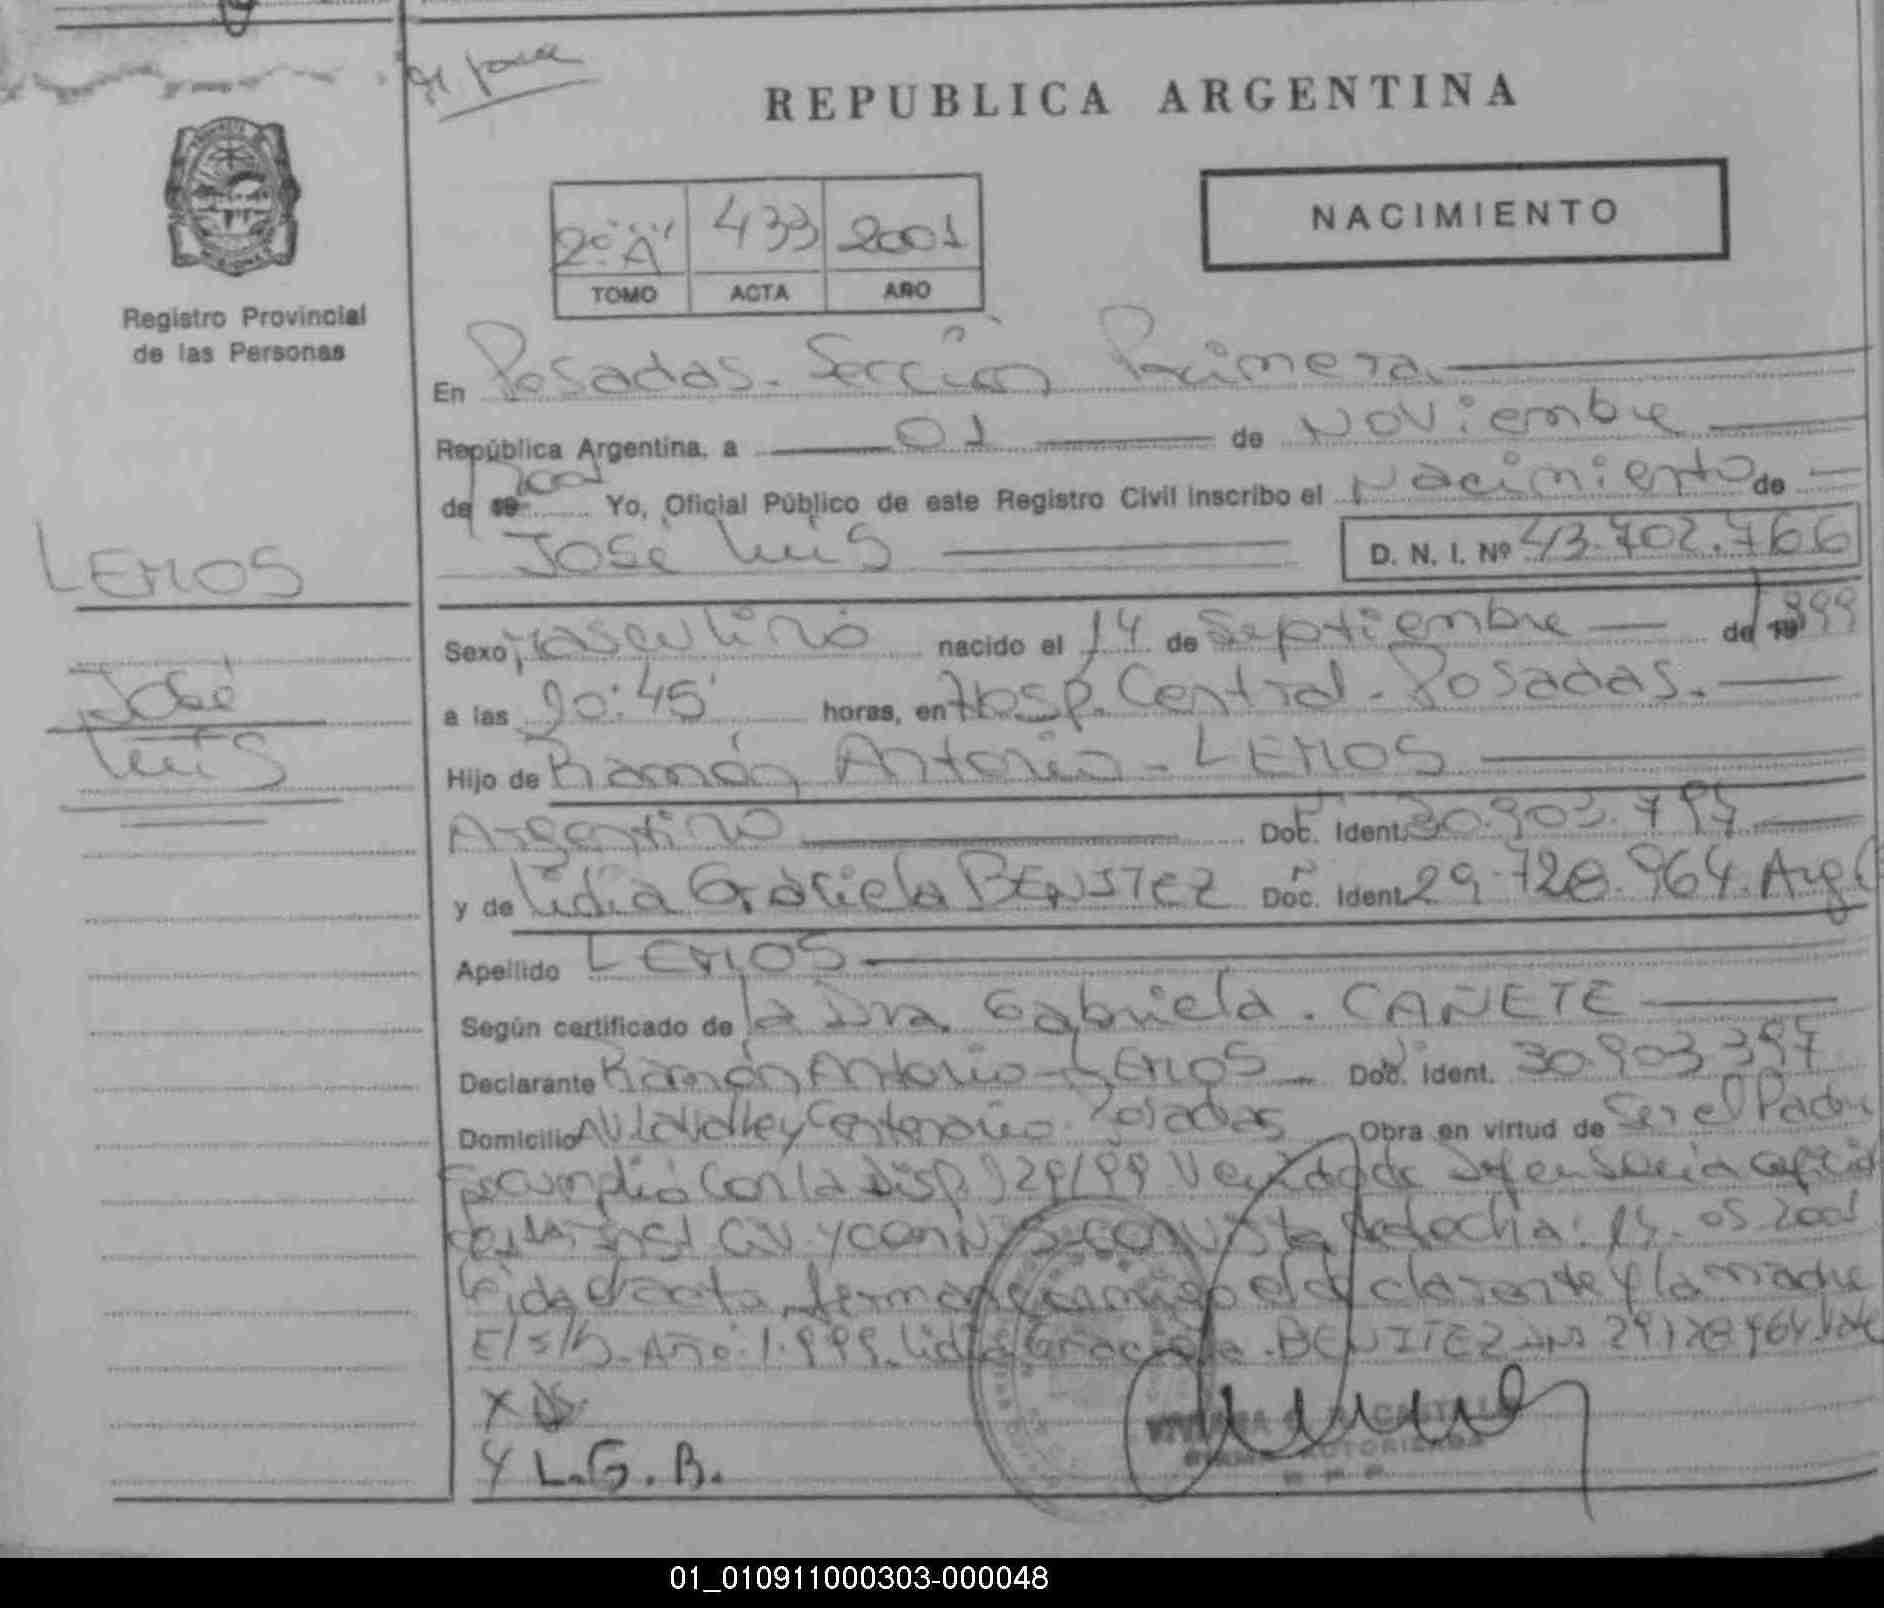 REPUBLICA ARGENTINA
NACIMIENTO
2º "A" 433 2001
TOMO ACTA AÑO
Registro Provincial
de las Personas
En Posadas. Sección Primera
República Argentina, a 01 de Noviembre
de 19 2001 Yo, Oficial Público de este Registro Civil inscribo el Nacimiento de
José Luis D. N. I. Nº 43.702.766
LEMOS
José
Luis
Sexo Masculino nacido el 14 de Septiembre de 1999
a las 20:45' horas, en Hosp. Central. Posadas.
Hijo de Ramón Antonio - LEMOS
Argentino Doc. Ident. 30.903.797
y de Lidia Graciela BENITEZ Doc. Ident. 29.728.964. Arg
Apellido LEMOS
Según certificado de la Dra Gabriela. CAÑETE
Declarante Ramón Antonio - LEMOS Doc. Ident. 30.903.397
Domicilio Av. Lavalle y Centenario. Posadas Obra en virtud de Ser el Padre
Se cumplió con la Disp. 129/99
con vista de fecha: 15. 05 2001
Leída el acta firman conmigo el declarante y la madre
E/s/b. Año: 1.999. Lidia Graciela. BENITEZ 29728964. Vale
Y L.G.B.
01_010911000303-000048